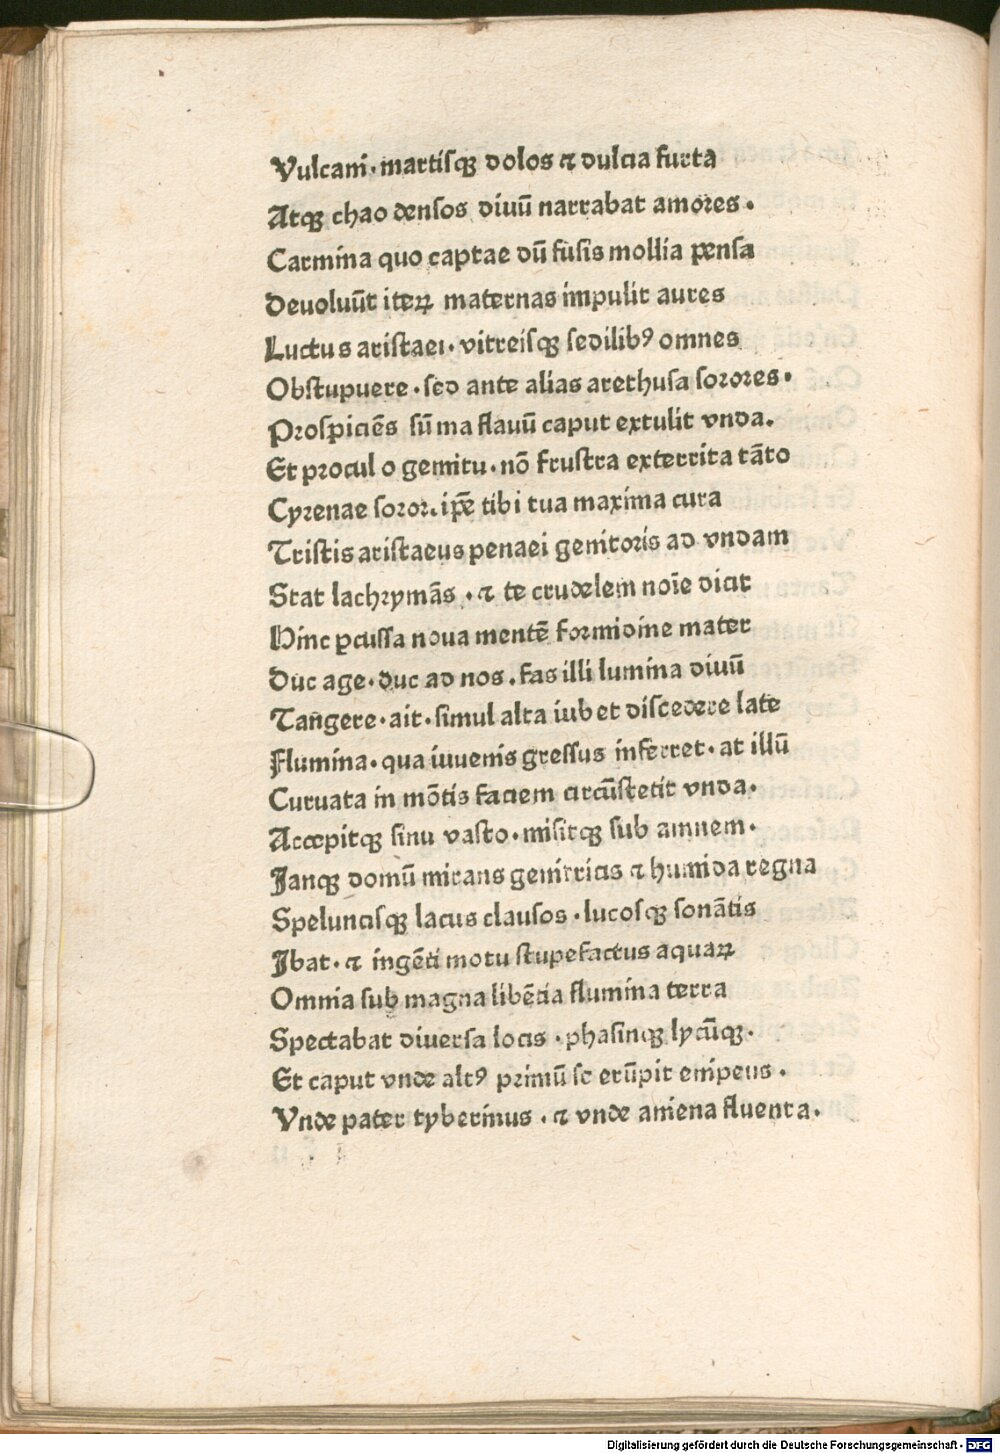 Vulcani·martisqꝫ dolos ⁊ dulcia furta
Atqꝫ chao densos diuū narrabat amores·
Carmina quo captae dū fusis mollia pensa
Deuoluūt iteꝝ maternas impulit aures
Luctus aristaei·vitreisqꝫ sedilibꝰ omnes
Obstupuere·sed ante alias arethusa sorores·
Prospiciēs sūma flauū caput extulit vnda.
Et procul o gemitu·nō frustra exterrita tāto
Cyrenae soror.ip̄e tibi tua maxima cura
Tristis aristaeus penaei genitoris ad vndam
Stat lachrymās·⁊ te crudelem noīe dicit
Hinc ꝑcussa noua mentē formidine mater
Duc age·duc ad nos.fas illi lumina diuū
Tangere·ait·simul alta iubet discedere late
Flumina·qua iuuenis gressus inferret·at illū
Curuata in mōtis faciem circūstetit vnda·
Accepitqꝫ sinu vasto·misitqꝫ sub amnem·
Janqꝫ domū mirans genitricis ⁊ humida regna
Speluncisqꝫ lacus clausos·lucosqꝫ sonātis
Ibat·⁊ ingēti motu stupefactus aquaꝝ
Omnia sub magna libētia flumina terra
Spectabat diuersa locis·phasinqꝫ lycūqꝫ·
Et caput vnde altꝰ primū se erūpit enipeus·
Vnde pater tyberinus·⁊ vnde aniena fluenta·
Digitalisierung gefördert durch die Deutsche Forschungsgemeinschaft - DFG